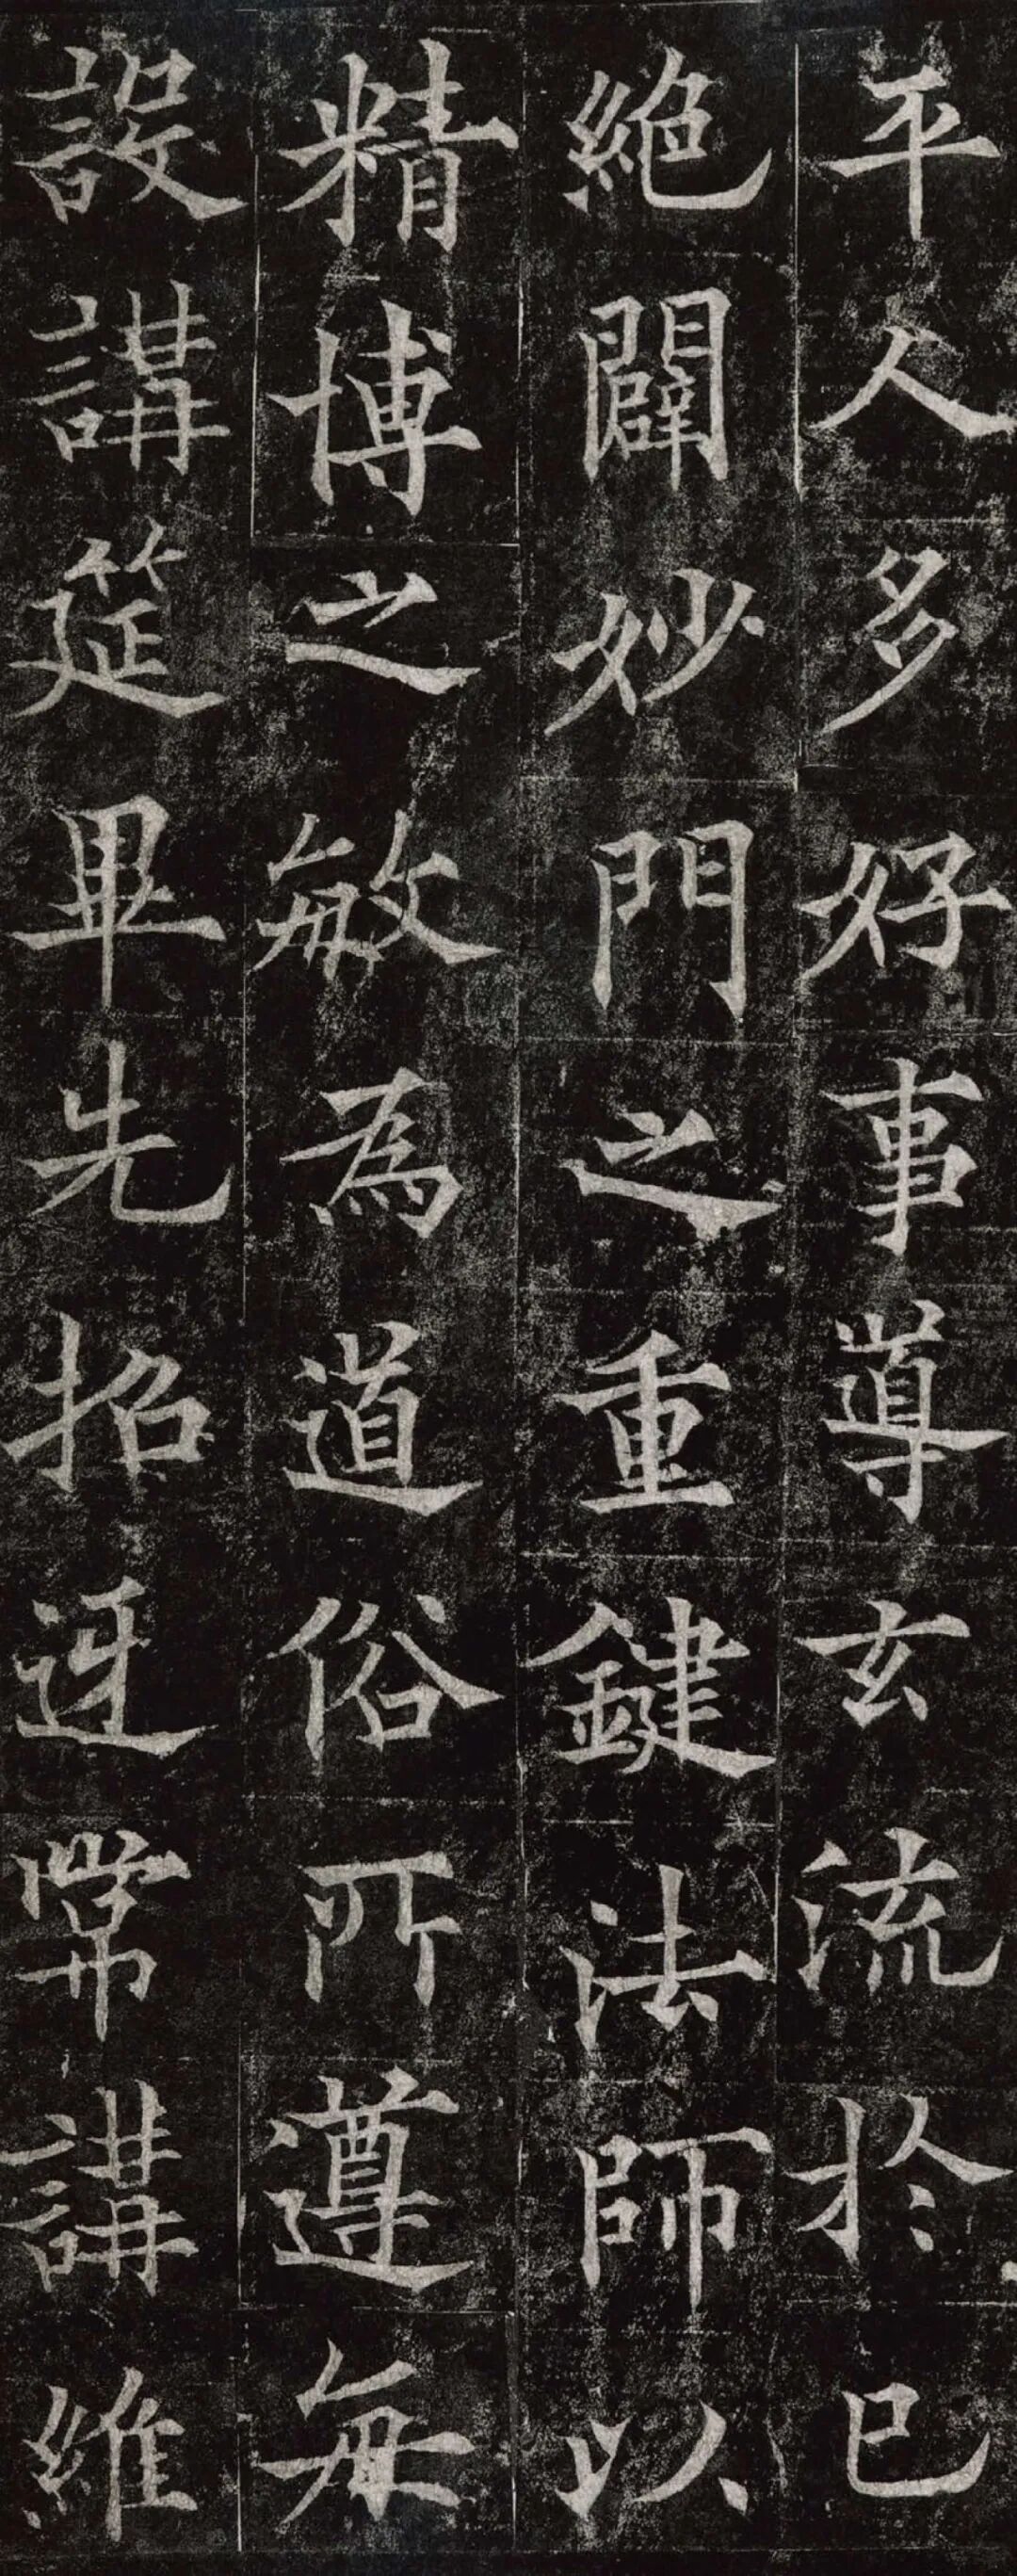 平人多好事導玄流於已
絶闢妙門之重鍵法師以
精博之敏為道俗所遵每
設講筵畢先招迓常講維